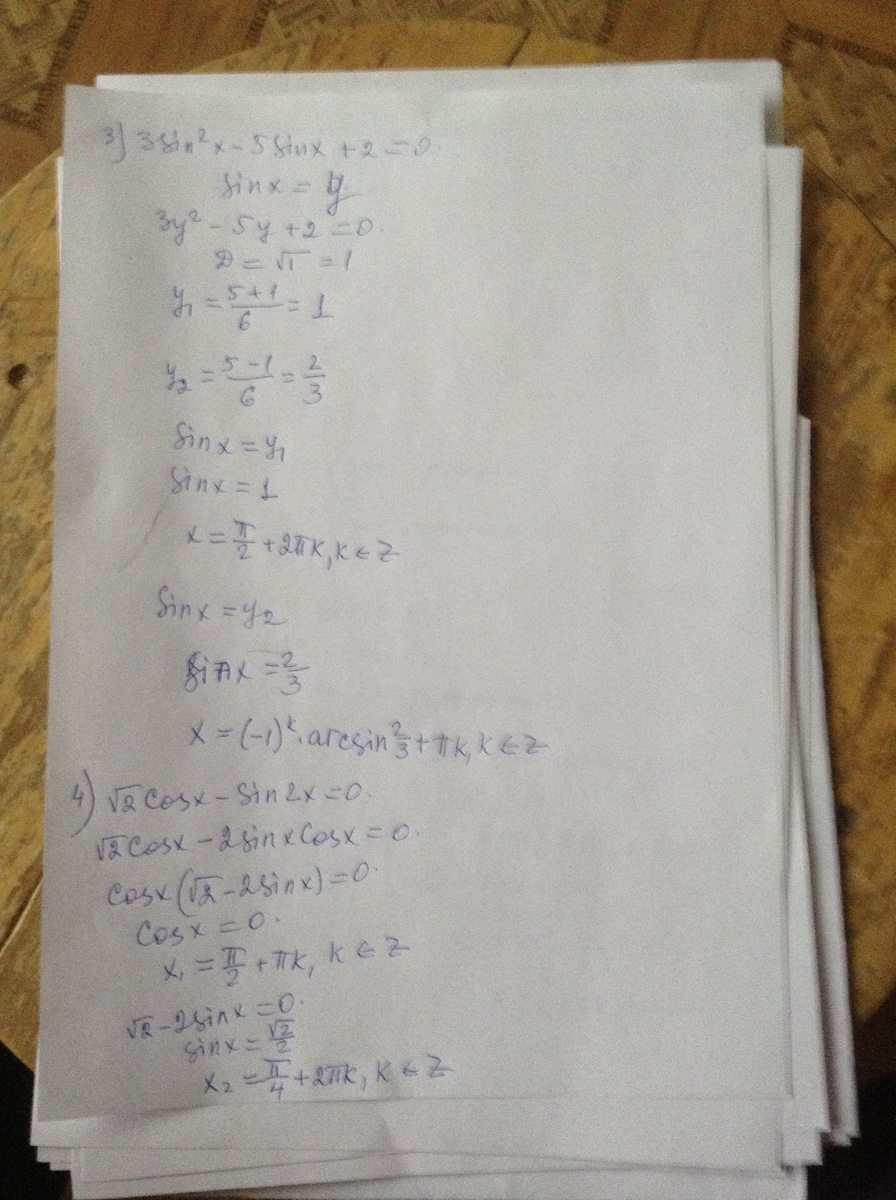 3) 3sin²x - 5sinx + 2 = 0.
sinx = y
3y² - 5y + 2 = 0.
D = √1 = 1
y₁ = (5+1)/6 = 1
y₂ = (5-1)/6 = 2/3
sinx = y₁
sinx = 1
x = π/2 + 2πk, k ∈ Z
sinx = y₂
sinx = 2/3
x = (-1)ᵏ · arcsin 2/3 + πk, k ∈ Z
4) √2 cosx - sin2x = 0.
√2 cosx - 2sinxcosx = 0.
cosx(√2 - 2sinx) = 0.
cosx = 0.
x₁ = π/2 + πk, k ∈ Z
√2 - 2sinx = 0.
sinx = √2/2
x₂ = π/4 + 2πk, k ∈ Z